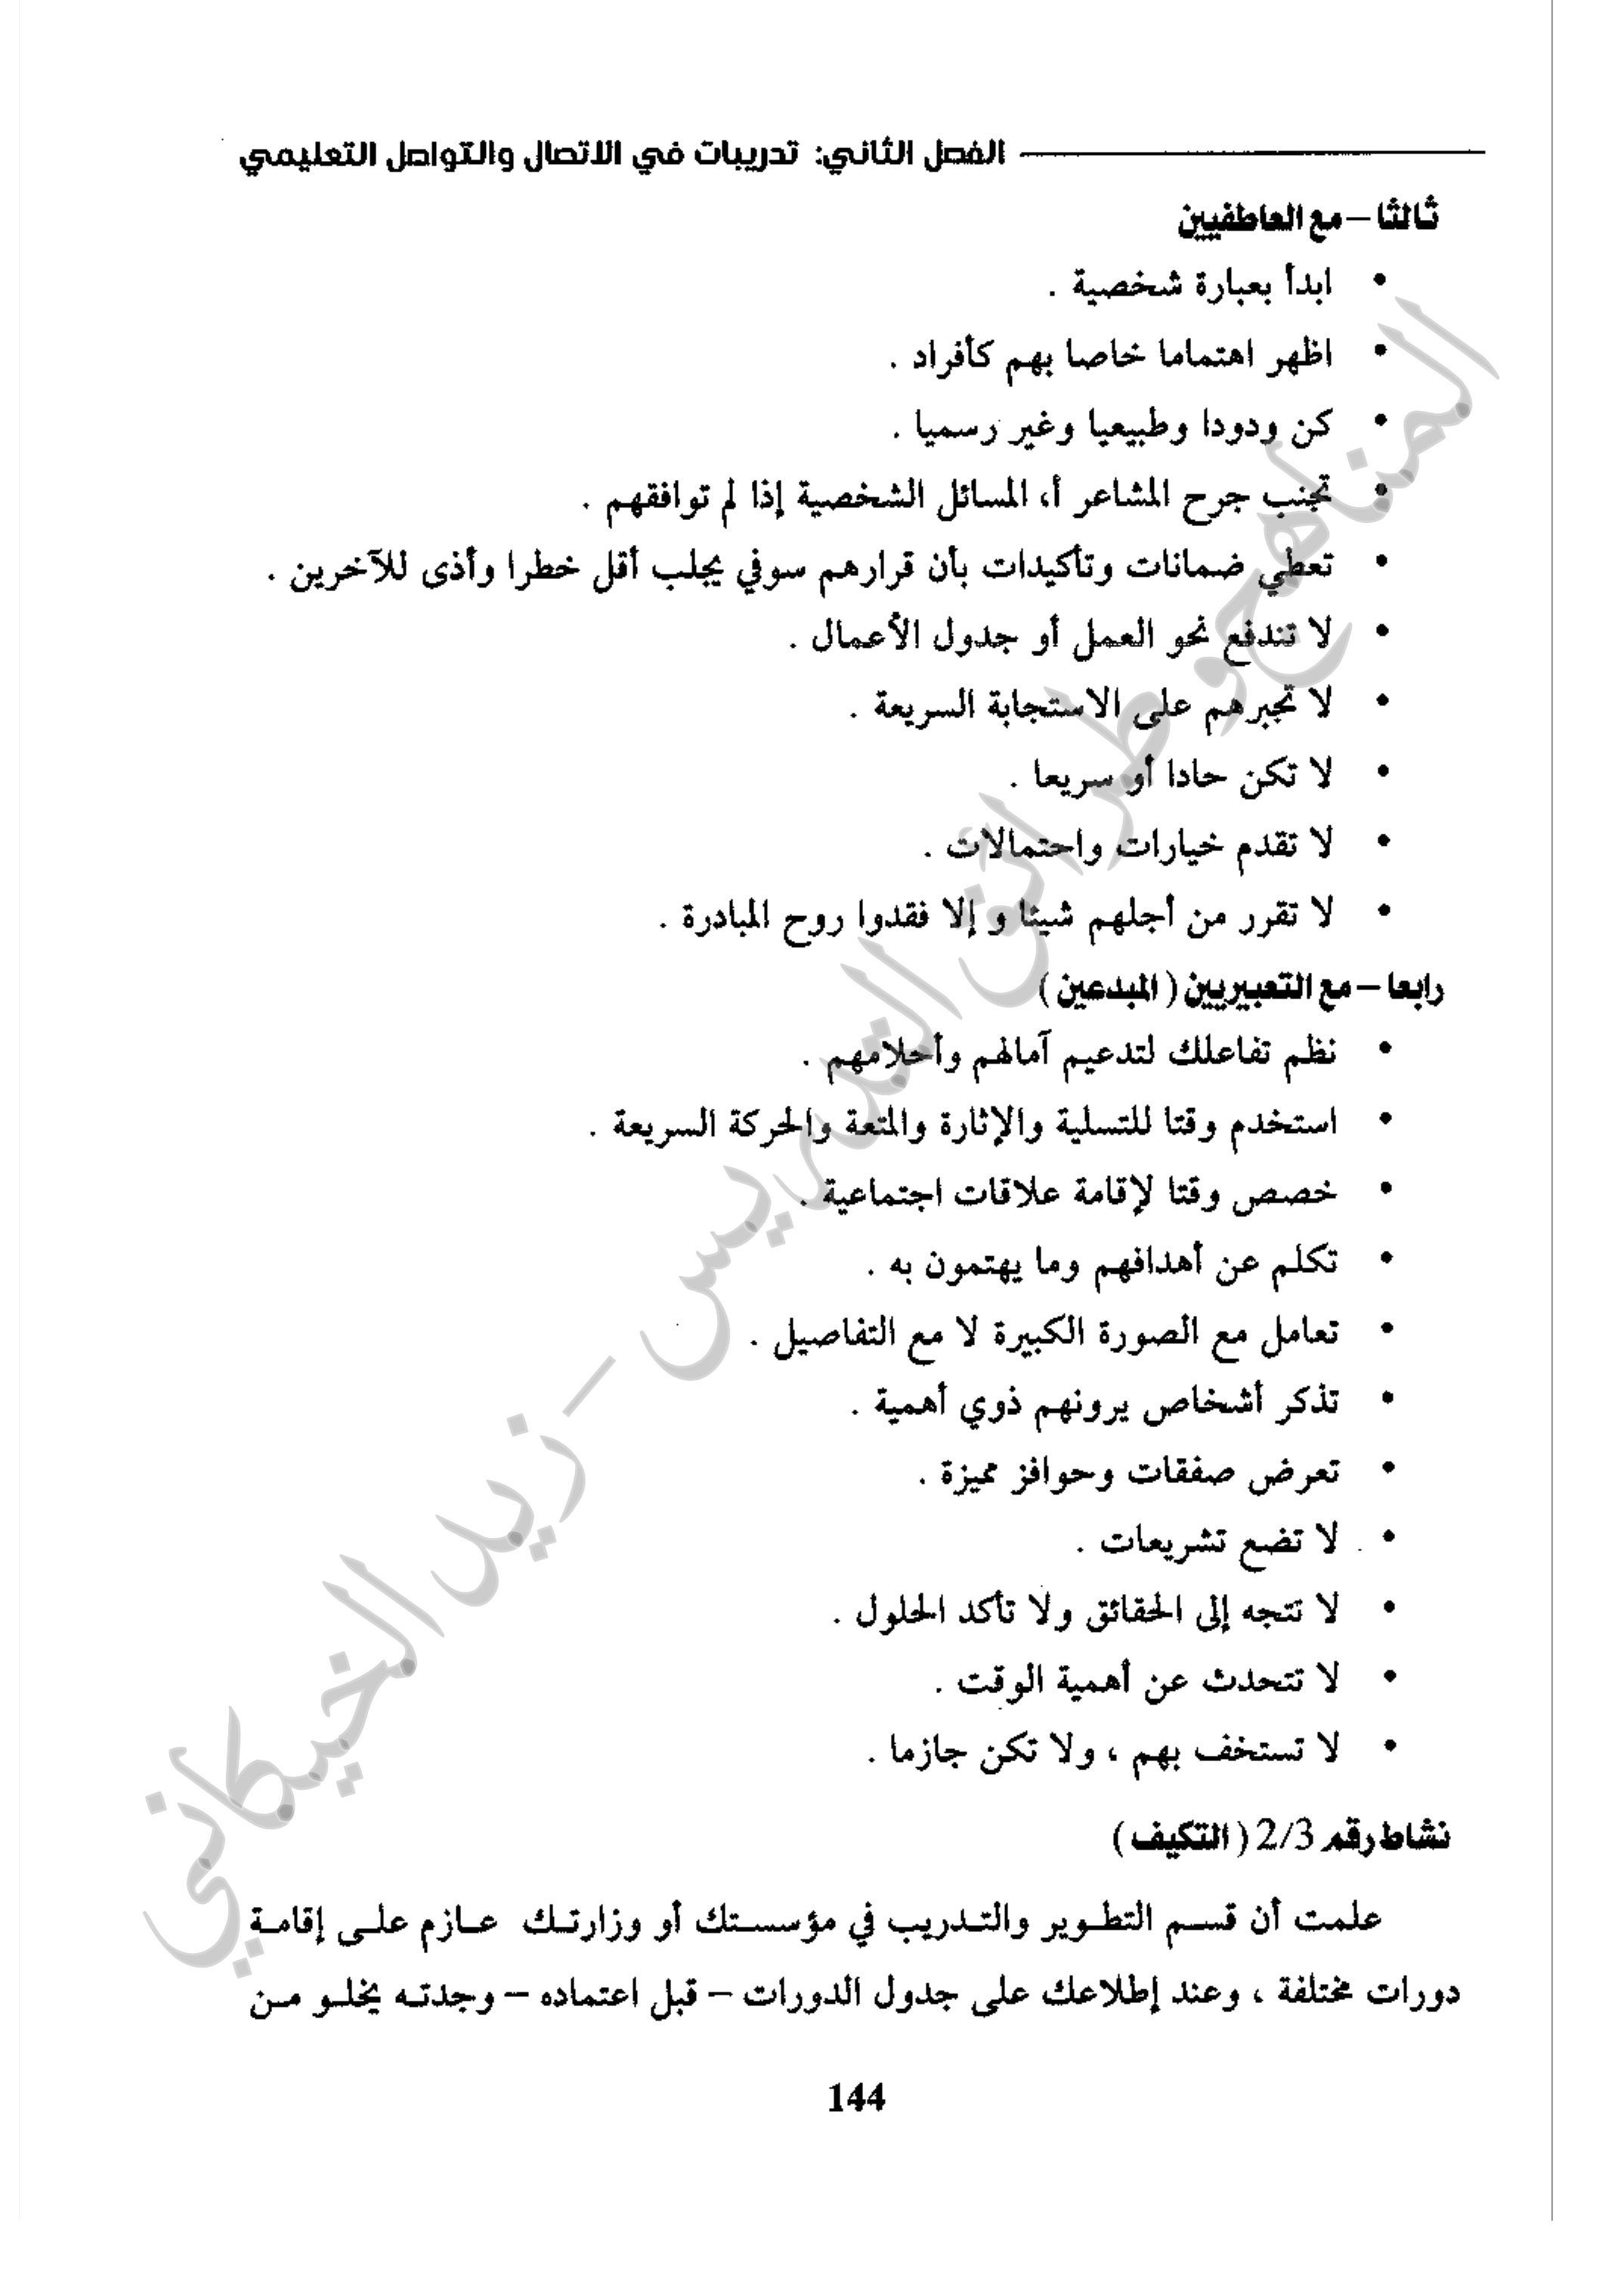 الفصل الثاني: تدريبات في الاتصال والتواصل التعليمي
ثالثا – مع العاطفيين
• ابدأ بعبارة شخصية .
• اظهر اهتماما خاصا بهم كأفراد .
• كن ودودا وطبيعيا وغير رسميا .
• تجنب جرح المشاعر أ، المسائل الشخصية إذا لم توافقهم .
• تعطي ضمانات وتأكيدات بأن قرارهم سوفي يجلب أقل خطرا وأذى للآخرين .
• لا تندفع نحو العمل أو جدول الأعمال .
• لا تجبرهم على الاستجابة السريعة .
• لا تكن حادا أو سريعا .
• لا تقدم خيارات واحتمالات .
• لا تقرر من أجلهم شيئا و إلا فقدوا روح المبادرة .
رابعا – مع التعبيريين ( المبدعين )
• نظم تفاعلك لتدعيم آمالهم وأحلامهم .
• استخدم وقتا للتسلية والإثارة والمتعة والحركة السريعة .
• خصص وقتا لإقامة علاقات اجتماعية .
• تكلم عن أهدافهم وما يهتمون به .
• تعامل مع الصورة الكبيرة لا مع التفاصيل .
• تذكر أشخاص يرونهم ذوي أهمية .
• تعرض صفقات وحوافز مميزة .
• لا تضع تشريعات .
• لا تتجه إلى الحقائق ولا تأكد الحلول .
• لا تتحدث عن أهمية الوقت .
• لا تستخف بهم ، ولا تكن جازما .
نشاط رقم 2/3 ( التكيف )
علمت أن قسم التطوير والتدريب في مؤسستك أو وزارتك عازم على إقامة
دورات مختلفة ، وعند إطلاعك على جدول الدورات – قبل اعتماده – وجدته يخلو من
144
المناهج وطرائق التدريس – زيد الخيكاني